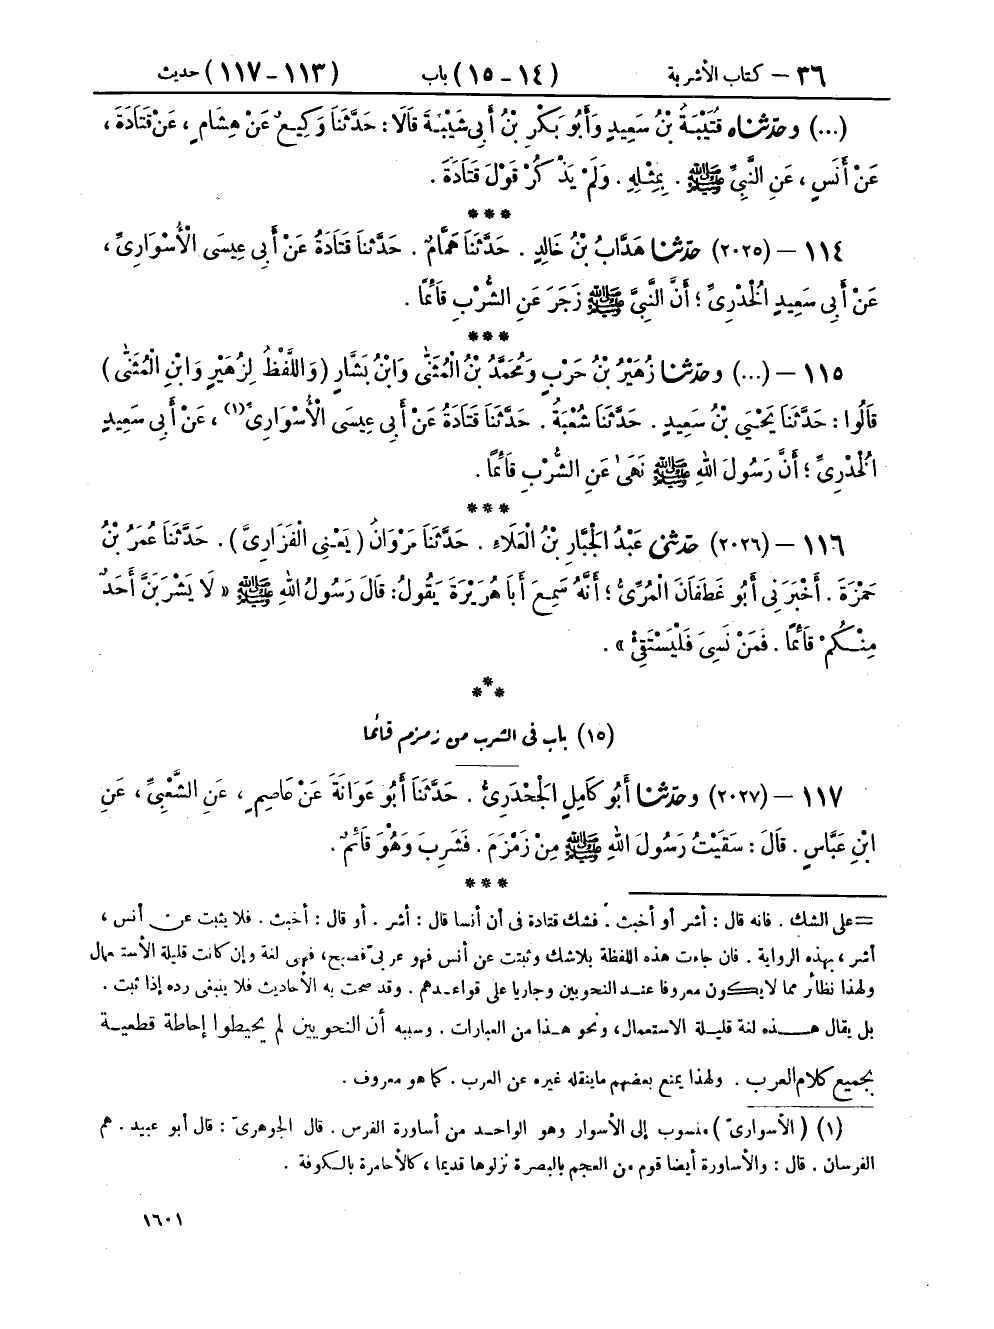 ٣٦ – كتاب الأشربة (١٤ - ١٥) باب (١١٣ - ١١٧) حديث
(...) وحَدَّثَنَاه قُتَيْبَةُ بْنُ سَعِيدٍ وَأَبُو بَكْرِ بْنُ أَبِي شَيْبَةَ قَالَا: حَدَّثَنَا وَكِيعٌ عَنْ هِشَامٍ، عَنْ قَتَادَةَ،
عَنْ أَنَسٍ، عَنِ النَّبِيِّ ﷺ. بِمِثْلِهِ. وَلَمْ يَذْكُرْ قَوْلَ قَتَادَةَ.
***
١١٤ – (٢٠٢٥) حَدَّثَنَا هَدَّابُ بْنُ خَالِدٍ. حَدَّثَنَا هَمَّامٌ. حَدَّثَنَا قَتَادَةُ عَنْ أَبِي عِيسَى الْأُسْوَارِيِّ،
عَنْ أَبِي سَعِيدٍ الْخُدْرِيِّ؛ أَنَّ النَّبِيَّ ﷺ زَجَرَ عَنِ الشُّرْبِ قَائِمًا.
***
١١٥ – (...) وحَدَّثَنَا زُهَيْرُ بْنُ حَرْبٍ وَمُحَمَّدُ بْنُ الْمُثَنَّى وَابْنُ بَشَّارٍ (وَاللَّفْظُ لِزُهَيْرٍ وَابْنِ الْمُثَنَّى)
قَالُوا: حَدَّثَنَا يَحْيَى بْنُ سَعِيدٍ. حَدَّثَنَا شُعْبَةُ. حَدَّثَنَا قَتَادَةُ عَنْ أَبِي عِيسَى الْأُسْوَارِيِّ(١)، عَنْ أَبِي سَعِيدٍ
الْخُدْرِيِّ؛ أَنَّ رَسُولَ اللهِ ﷺ نَهَى عَنِ الشُّرْبِ قَائِمًا.
***
١١٦ – (٢٠٢٦) حَدَّثَنِي عَبْدُ الْجَبَّارِ بْنُ الْعَلَاءِ. حَدَّثَنَا مَرْوَانُ (يَعْنِي الْفَزَارِيَّ). حَدَّثَنَا عُمَرُ بْنُ
حَمْزَةَ. أَخْبَرَنِي أَبُو غَطَفَانَ الْمُرِّيُّ؛ أَنَّهُ سَمِعَ أَبَا هُرَيْرَةَ يَقُولُ: قَالَ رَسُولُ اللهِ ﷺ «لَا يَشْرَبَنَّ أَحَدٌ
مِنْكُمْ قَائِمًا. فَمَنْ نَسِيَ فَلْيَسْتَقِئْ».
***
(١٥) باب في الشرب من زمزم قائما
١١٧ – (٢٠٢٧) وحَدَّثَنَا أَبُو كَامِلٍ الْجَحْدَرِيُّ. حَدَّثَنَا أَبُو عَوَانَةَ عَنْ عَاصِمٍ، عَنِ الشَّعْبِيِّ، عَنِ
ابْنِ عَبَّاسٍ. قَالَ: سَقَيْتُ رَسُولَ اللهِ ﷺ مِنْ زَمْزَمَ. فَشَرِبَ وَهُوَ قَائِمٌ.
***
=على الشك. فانه قال: أشر أو أخبث. فشك قتادة في أن أنسا قال: أشر. أو قال: أخبث. فلا يثبت عن أنس،
أشر، بهذه الرواية. فان جاءت هذه اللفظة بلا شك وثبتت عن أنس فهو عربيّ فصيح، فهي لغة وإن كانت قليلة الاستعمال
ولهذا نظائر مما لا يكون معروفا عند النحويين وجاريا على قواعدهم. وقد صحت به الأحاديث فلا ينبغي رده إذا ثبت.
بل يقال هذه لغة قليلة الاستعمال، ونحو هذا من العبارات. وسببه أن النحويين لم يحيطوا إحاطة قطعية
بجميع كلام العرب. ولهذا يمنع بعضهم ما ينقله غيره عن العرب. كما هو معروف.
(١) (الأسواريّ) منسوب إلى الأسوار وهو الواحد من أساورة الفرس. قال الجوهريّ: قال أبو عبيد. هم
الفرسان. قال: والأساورة أيضا قوم من العجم بالبصرة نزلوها قديما، كالأحامرة بالكوفة.
١٦٠١